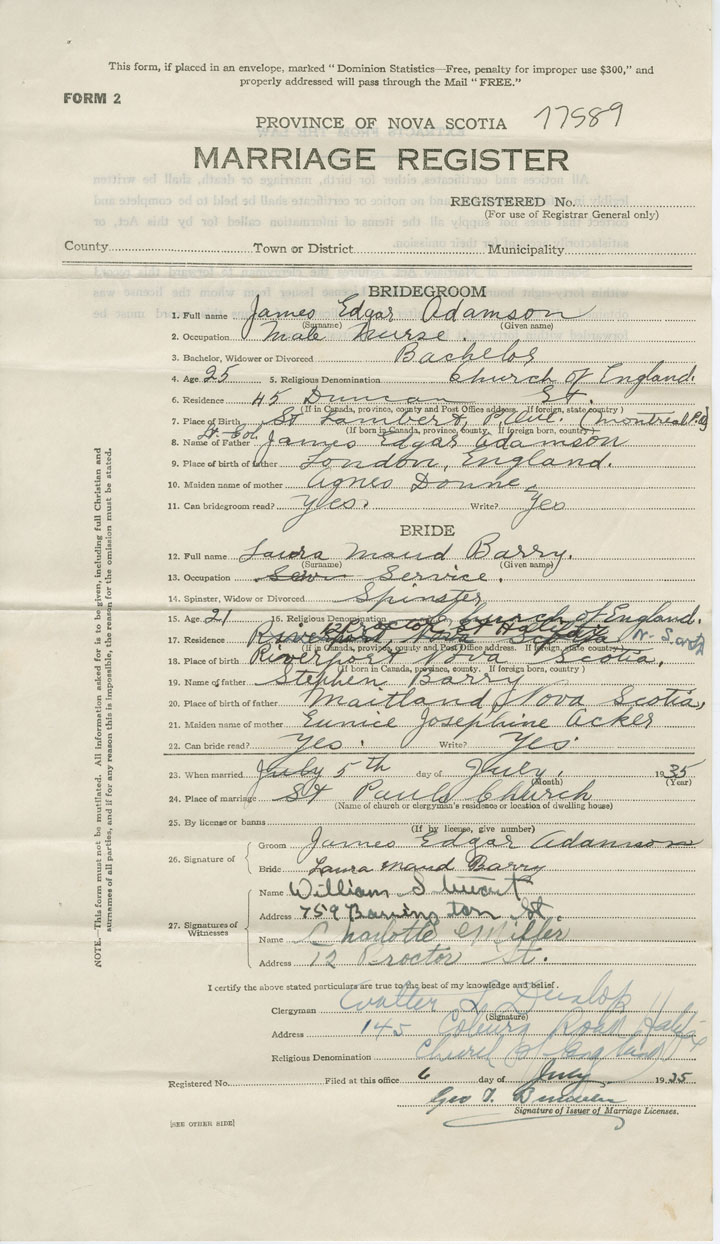 This form, if placed in an envelope, marked "Dominion Statistics—Free, penalty for improper use $300," and
properly addressed will pass through the Mail "FREE."
FORM 2
PROVINCE OF NOVA SCOTIA 17589
MARRIAGE REGISTER
REGISTERED No.
(For use of Registrar General only)
County Town or District Municipality
BRIDEGROOM
1. Full name James Edgar Adamson
(Surname) (Given name)
2. Occupation Male Nurse.
3. Bachelor, Widower or Divorced Bachelor
4. Age 25 5. Religious Denomination Church of England.
6. Residence 45 Duncan St.
(If in Canada, province, county and Post Office address. If foreign, state country)
7. Place of Birth St Lambert, P. Que. (Montreal P.Q)
(If born in Canada, province, county. If foreign born, country)
8. Name of Father Lt. Col. James Edgar Adamson
9. Place of birth of father London, England.
10. Maiden name of mother Agnes Donne,
11. Can bridegroom read? Yes. Write? Yes
BRIDE
12. Full name Laura Maud Barry.
(Surname) (Given name)
13. Occupation Service.
14. Spinster, Widow or Divorced Spinster
15. Age 21 16. Religious Denomination Church of England.
17. Residence Riverport, Nova Scotia
(If in Canada, province, county and Post Office address. If foreign, state country)
18. Place of birth Riverport Nova Scotia.
(If born in Canada, province, county. If foreign born, country)
19. Name of father Stephen Barry
20. Place of birth of father Maitland, Nova Scotia,
21. Maiden name of mother Eunice Josephine Acker
22. Can bride read? Yes. Write? Yes.
23. When married July 5th day of July, 1935
(Month) (Year)
24. Place of marriage St Pauls Church
(Name of church or clergyman's residence or location of dwelling house)
25. By license or banns
(If by license, give number)
26. Signature of
Groom James Edgar Adamson
Bride Laura Maud Barry
27. Signatures of Witnesses
Name William Stewart
Address 759 Barrington St.
Name Charlotte Miller
Address 12 Proctor St.
I certify the above stated particulars are true to the best of my knowledge and belief.
Clergyman Walter Dunlop
(Signature)
Address 145 Coburg Road
Religious Denomination Church of England
Registered No. Filed at this office 6 day of July 1935
Geo T.
Signature of Issuer of Marriage Licenses.
[SEE OTHER SIDE]
NOTE.—This form must not be mutilated. All information asked for is to be given, including full Christian and
surnames of all parties, and if for any reason this is impossible, the reason for the omission must be stated.